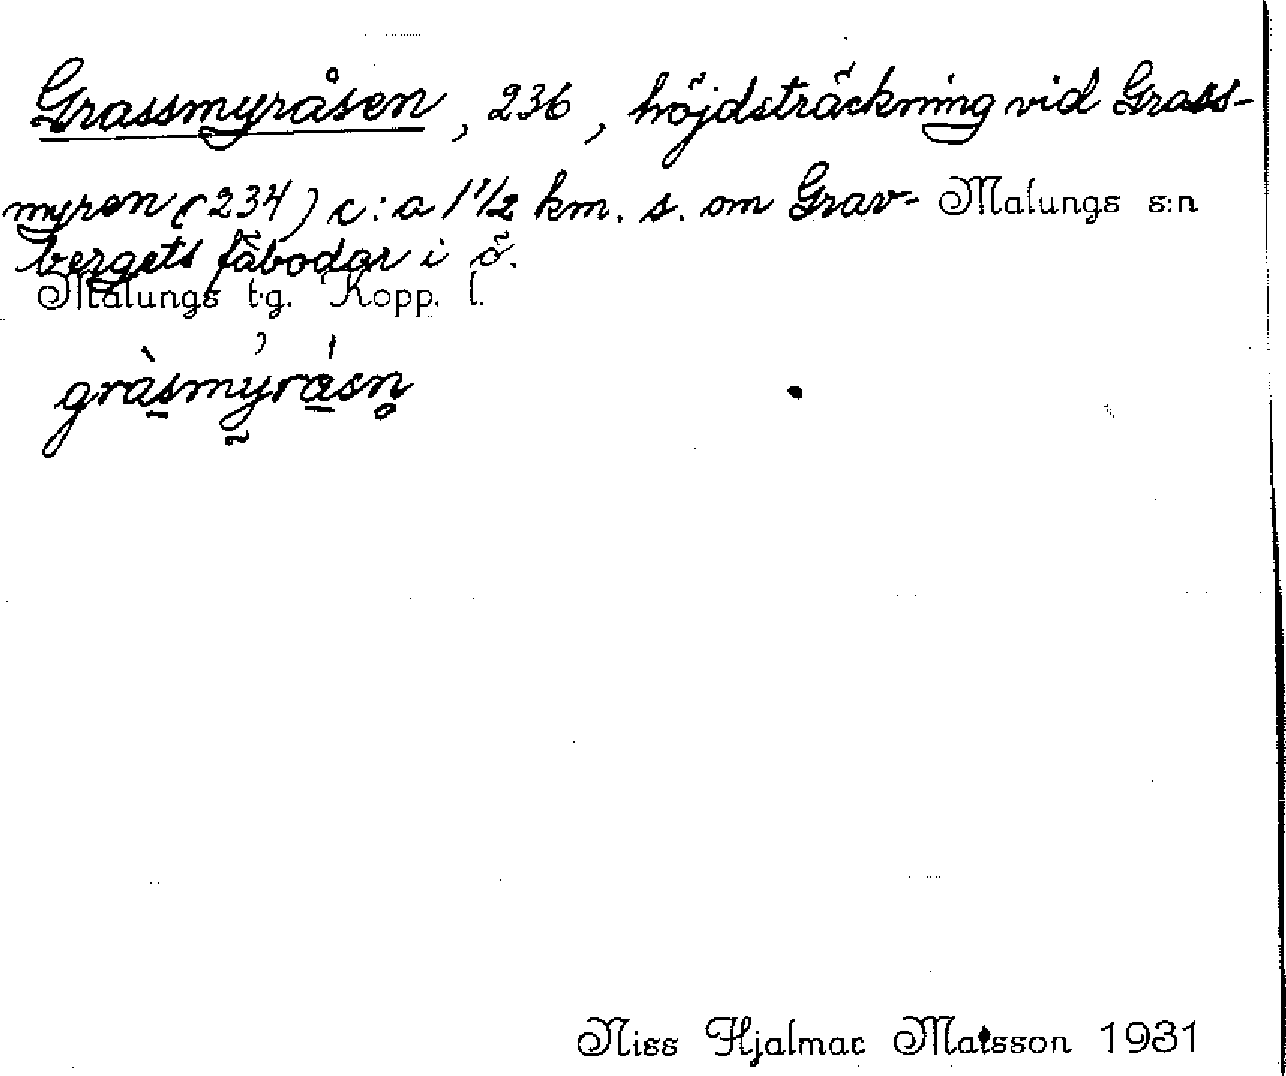 Grassmyråsen, 236, höjdsträckning vid Grass-
myren (234) c:a 1 1/2 km. s. om Grav- Malungs s:n
bergets fäbodar i ö.
Malungs t.g. Kopp. l.
gràsmýrásn̥
Niss Hjalmar Matsson 1931